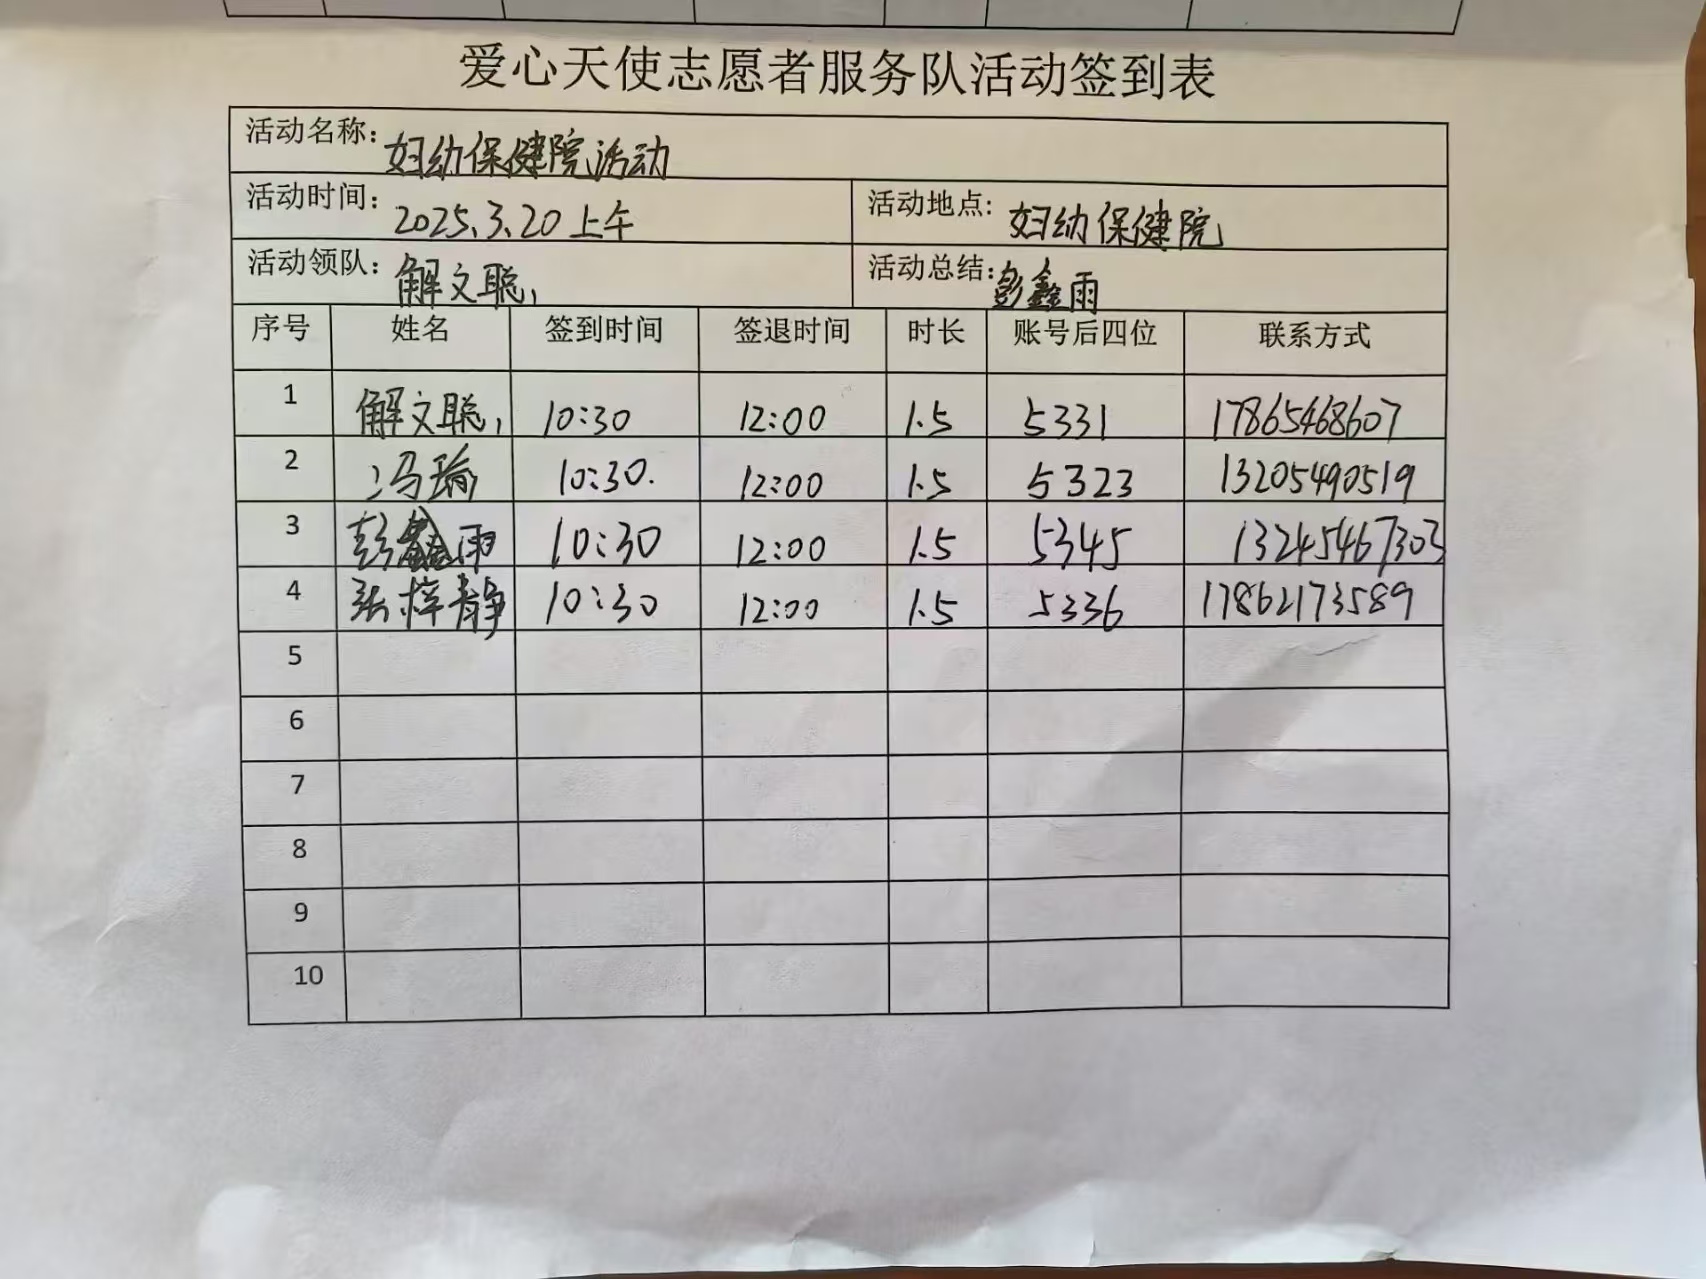 爱心天使志愿者服务队活动签到表
活动名称: 妇幼保健院活动
活动时间: 2025.3.20 上午 活动地点: 妇幼保健院
活动领队: 解文聪 活动总结: 彭鑫雨
序号 姓名 签到时间 签退时间 时长 账号后四位 联系方式
1 解文聪 10:30 12:00 1.5 5331 17865468607
2 冯瑜 10:30. 12:00 1.5 5323 13205490519
3 彭鑫雨 10:30 12:00 1.5 5345 13245467303
4 张梓静 10:30 12:00 1.5 5336 17862173589
5
6
7
8
9
10